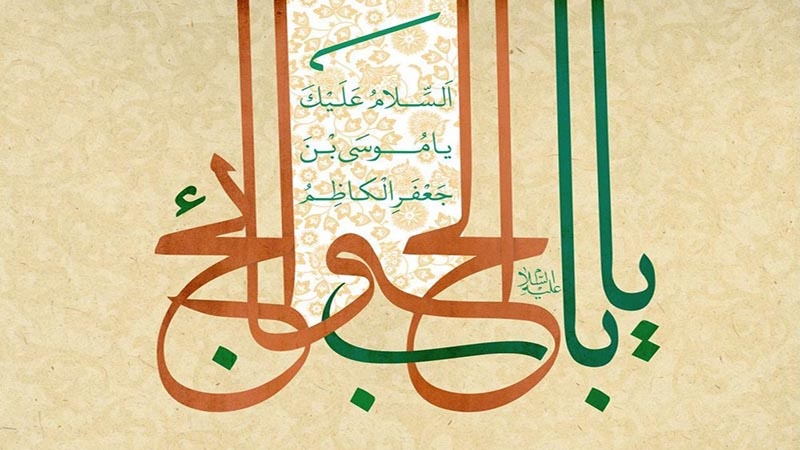 السَّلامُ عَلَيْكَ
يا مُوسَى بْنَ
جَعْفَرِ الْكاظِمُ
يا باب الحوائج
عليه السلام